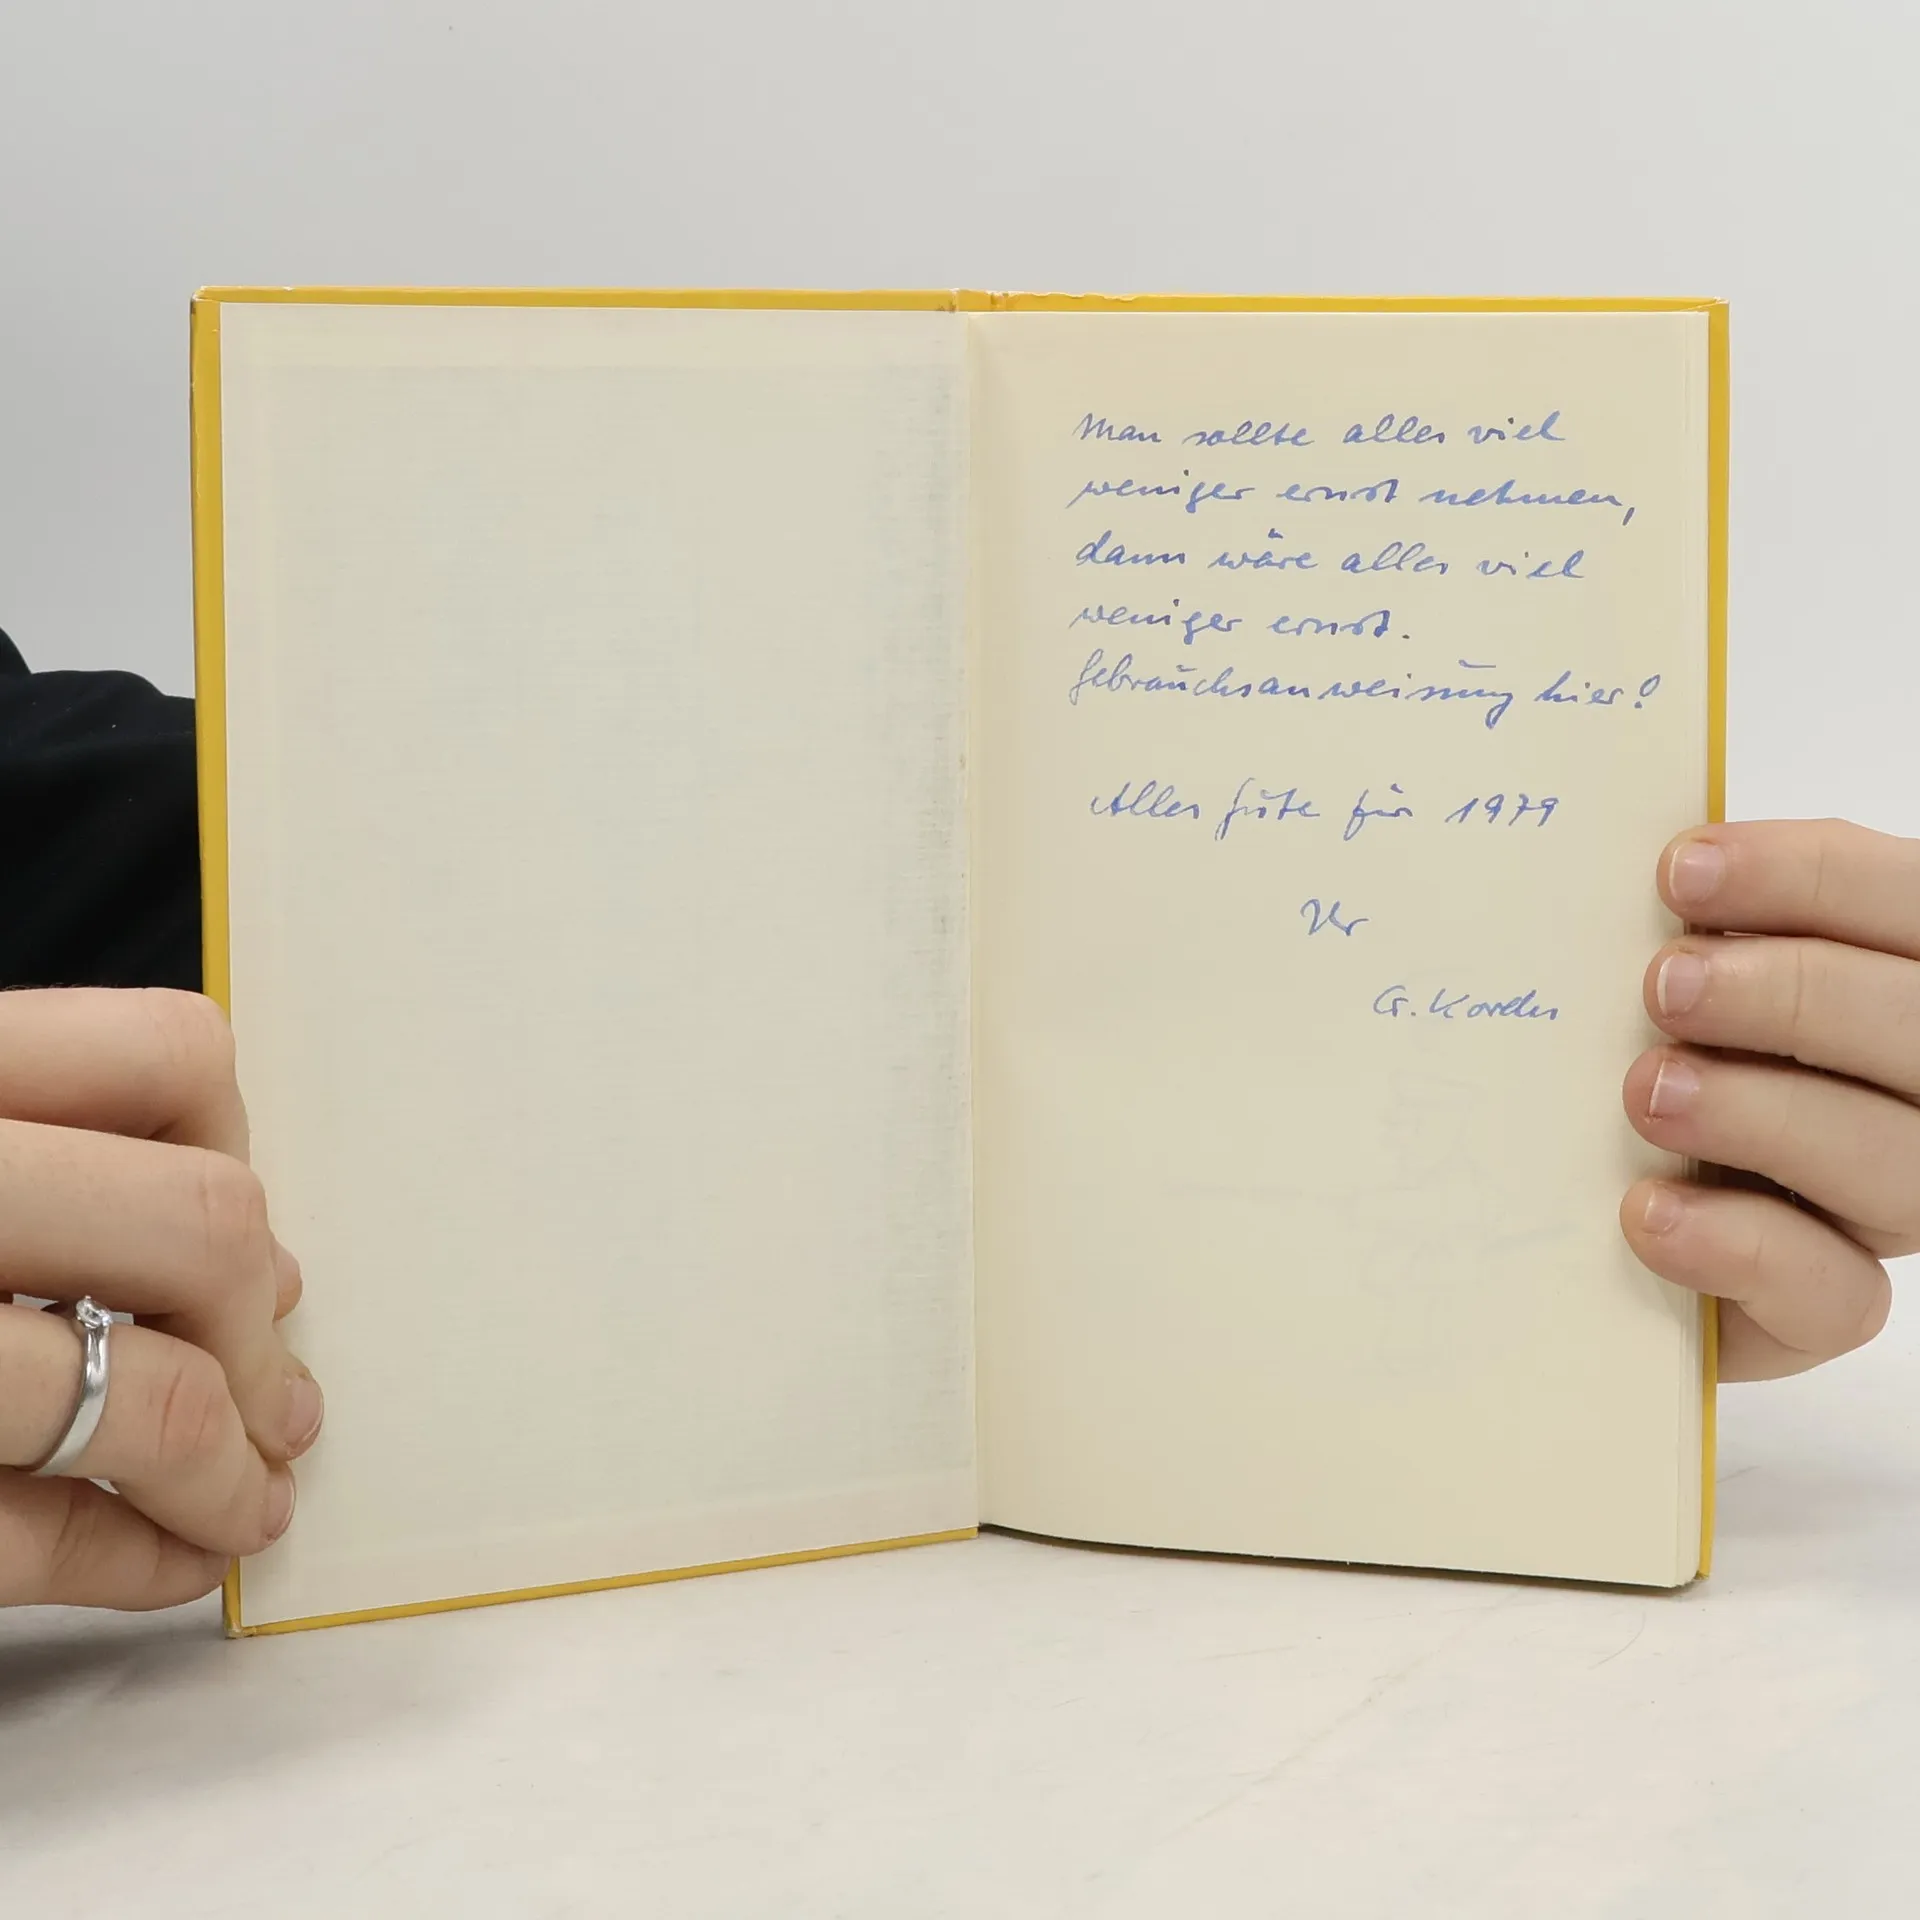 Man sollte alles viel
weniger ernst nehmen,
dann wäre alles viel
weniger ernst.
Gebrauchsanweisung hier!
Alles Gute für 1979
Ihr
G. Kordes